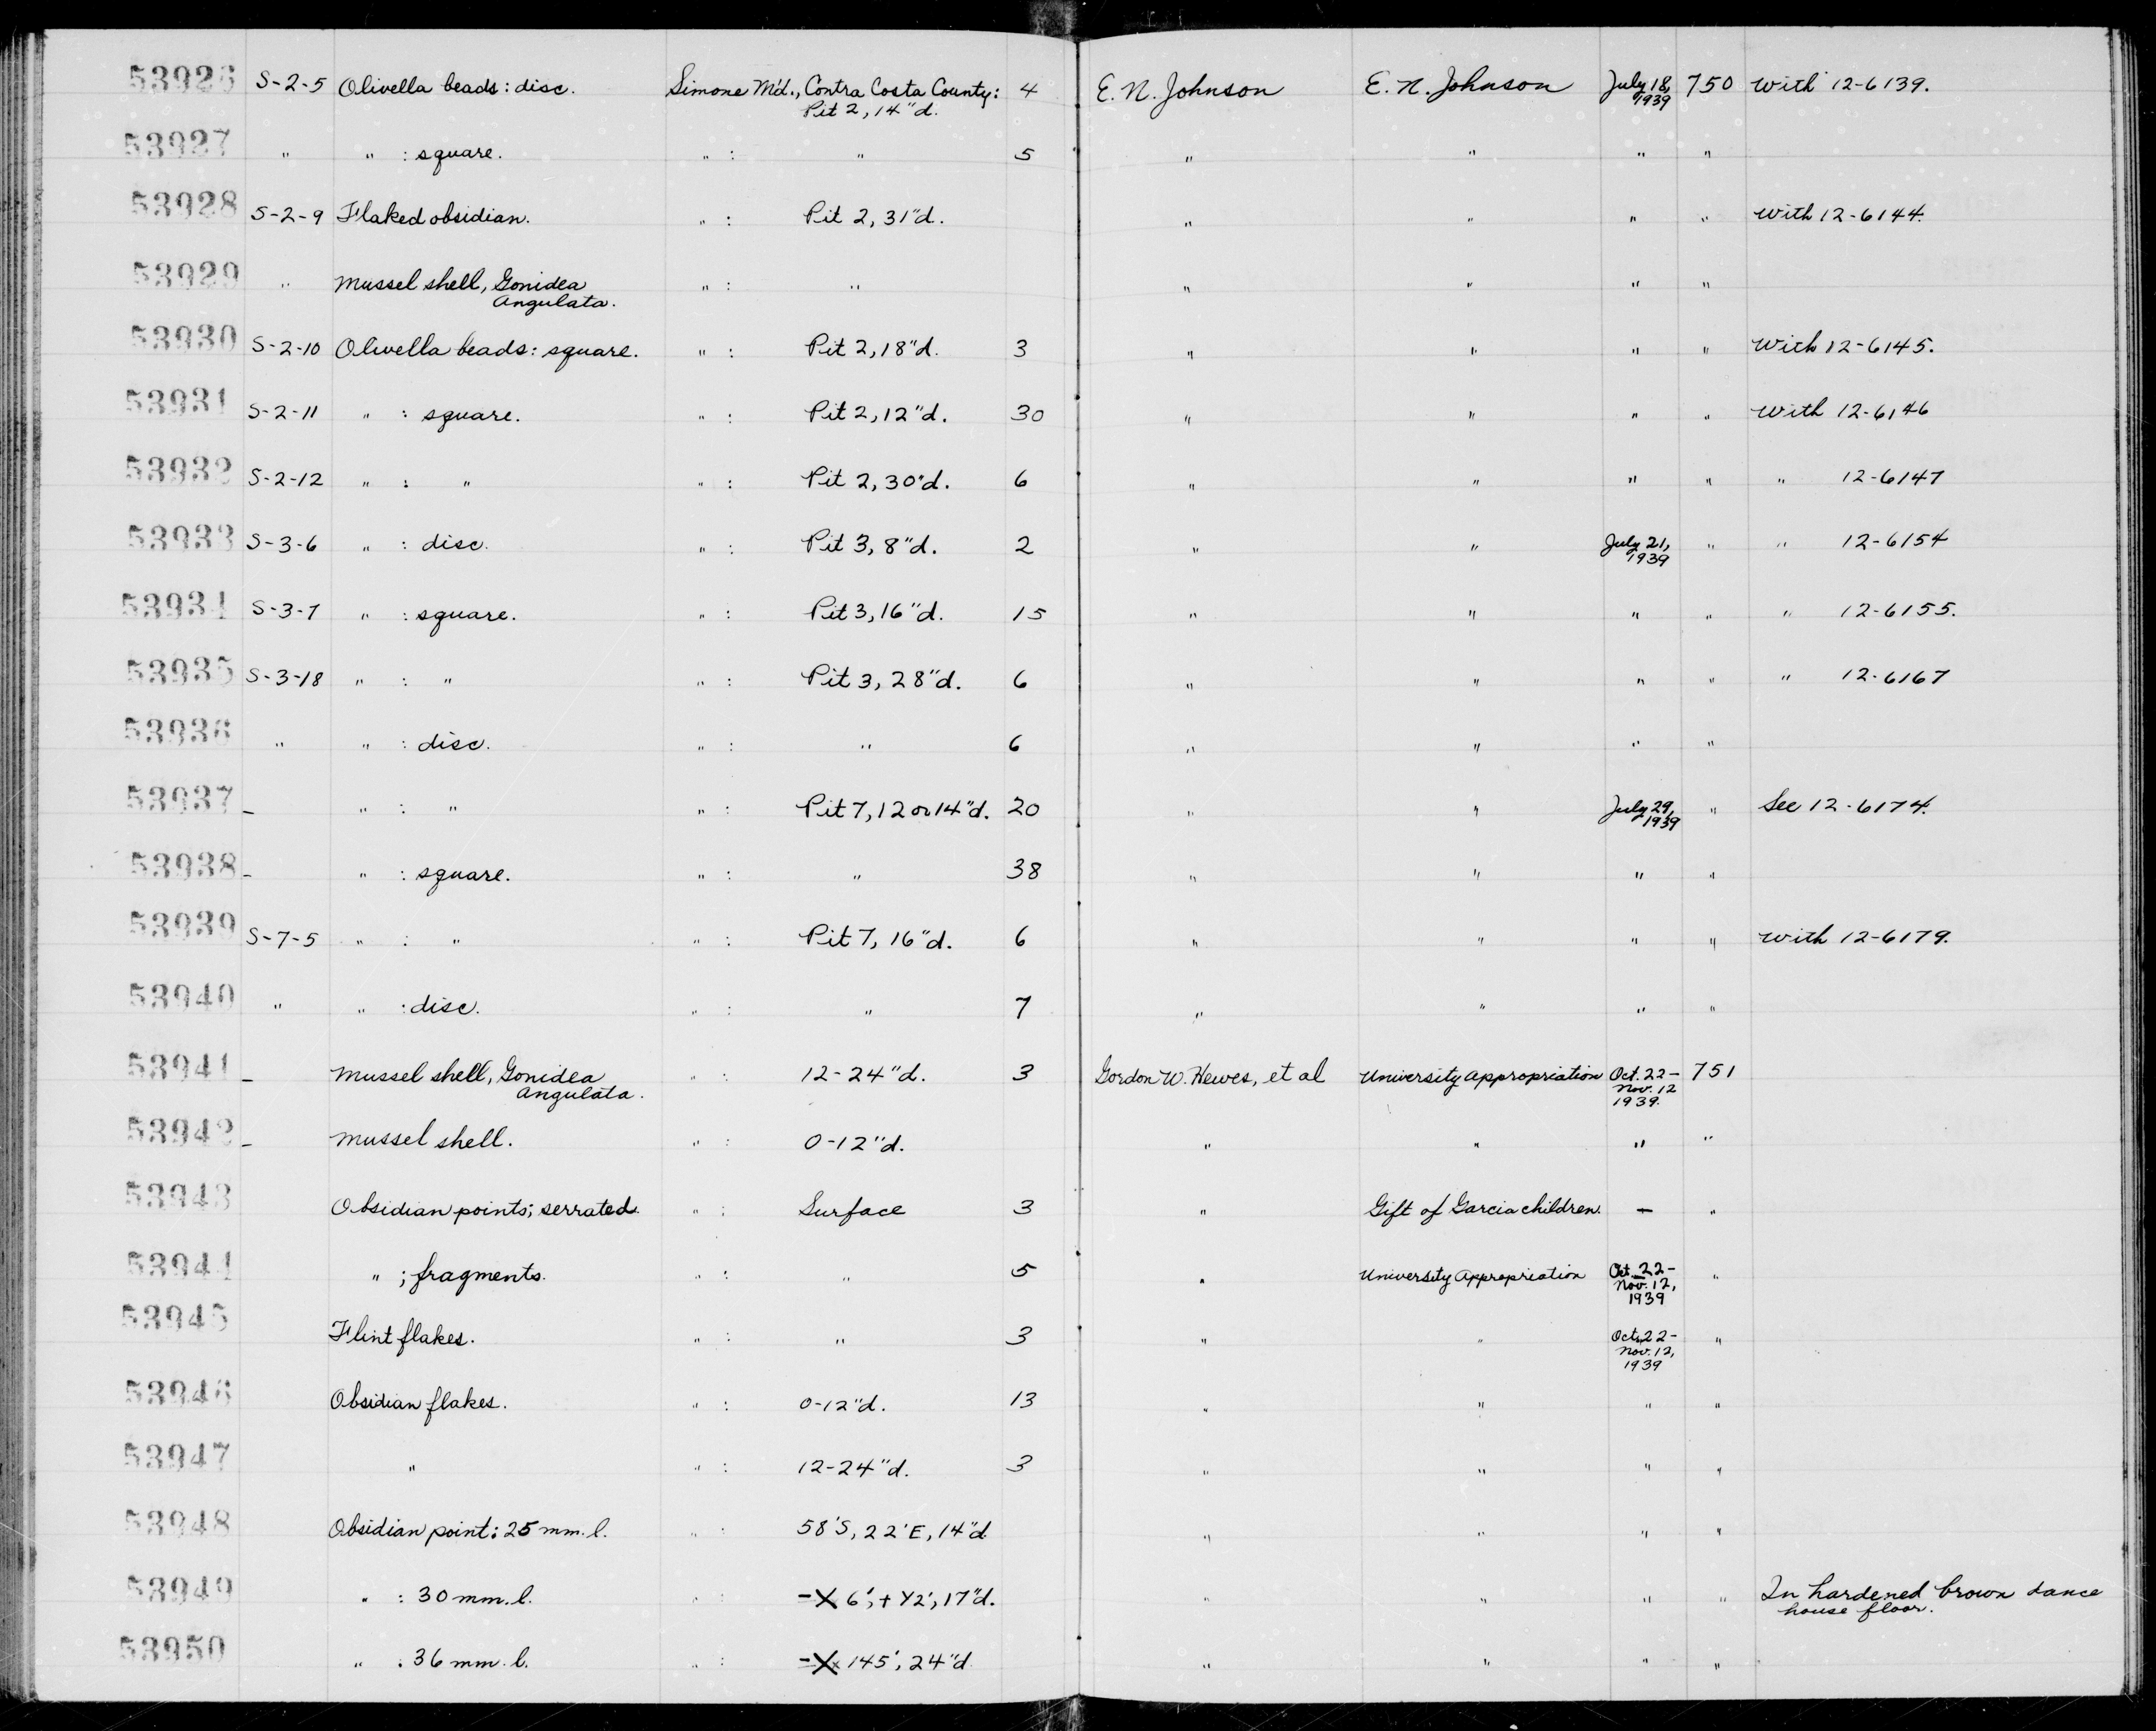 53926 S-2-5 Olivella beads: disc. Simone M'd., Contra Costa County: 4 E. N. Johnson E. N. Johnson July 18, 750 With 12-6139.
Pit 2, 14"d. 1939
53927 " " : square. " : " 5 " " " "
53928 S-2-9 Flaked obsidian. " : Pit 2, 31"d. " " " " With 12-6144.
53929 " Mussel shell, Gonidea " : " " " " "
Angulata.
53930 S-2-10 Olivella beads: square. " : Pit 2, 18"d. 3 " " " " With 12-6145.
53931 S-2-11 " : square. " : Pit 2, 12"d. 30 " " " " With 12-6146
53932 S-2-12 " : " " : Pit 2, 30"d. 6 " " " " " 12-6147
53933 S-3-6 " : disc. " : Pit 3, 8"d. 2 " " July 21, " " 12-6154
1939
53934 S-3-7 " : square. " : Pit 3, 16"d. 15 " " " " " 12-6155.
53935 S-3-18 " : " " : Pit 3, 28"d. 6 " " " " " 12-6167
53936 " " : disc. " : " 6 " " " "
53937 - " : " " : Pit 7, 12 or 14"d. 20 " " July 29, " See 12-6174.
1939
53938 - " : square. " : " 38 " " " "
53939 S-7-5 " : " " : Pit 7, 16"d. 6 " " " " With 12-6179.
53940 " " : disc. " : " 7 " " " "
53941 - Mussel shell, Gonidea " : 12-24"d. 3 Gordon W. Hewes, et al University Appropriation Oct. 22- 751
Angulata. Nov. 12
1939.
53942 - Mussel shell. " : 0-12"d. " " " "
53943 Obsidian points; serrated. " : Surface 3 " Gift of Garcia children. - "
53944 " ; fragments. " : " 5 " University Appropriation Oct. 22- "
Nov. 12,
1939
53945 Flint flakes. " : " 3 " " Oct. 22- "
Nov. 12,
1939
53946 Obsidian flakes. " : 0-12"d. 13 " " " "
53947 " " : 12-24"d. 3 " " " "
53948 Obsidian point: 25 mm. l. " : 58'S, 22'E, 14"d " " " "
53949 " : 30 mm. l. " : -X 6', + Y2', 17"d. " " " " In hardened brown dance
house floor.
53950 " : 36 mm. l. " : -X 145', 24"d. " " " "